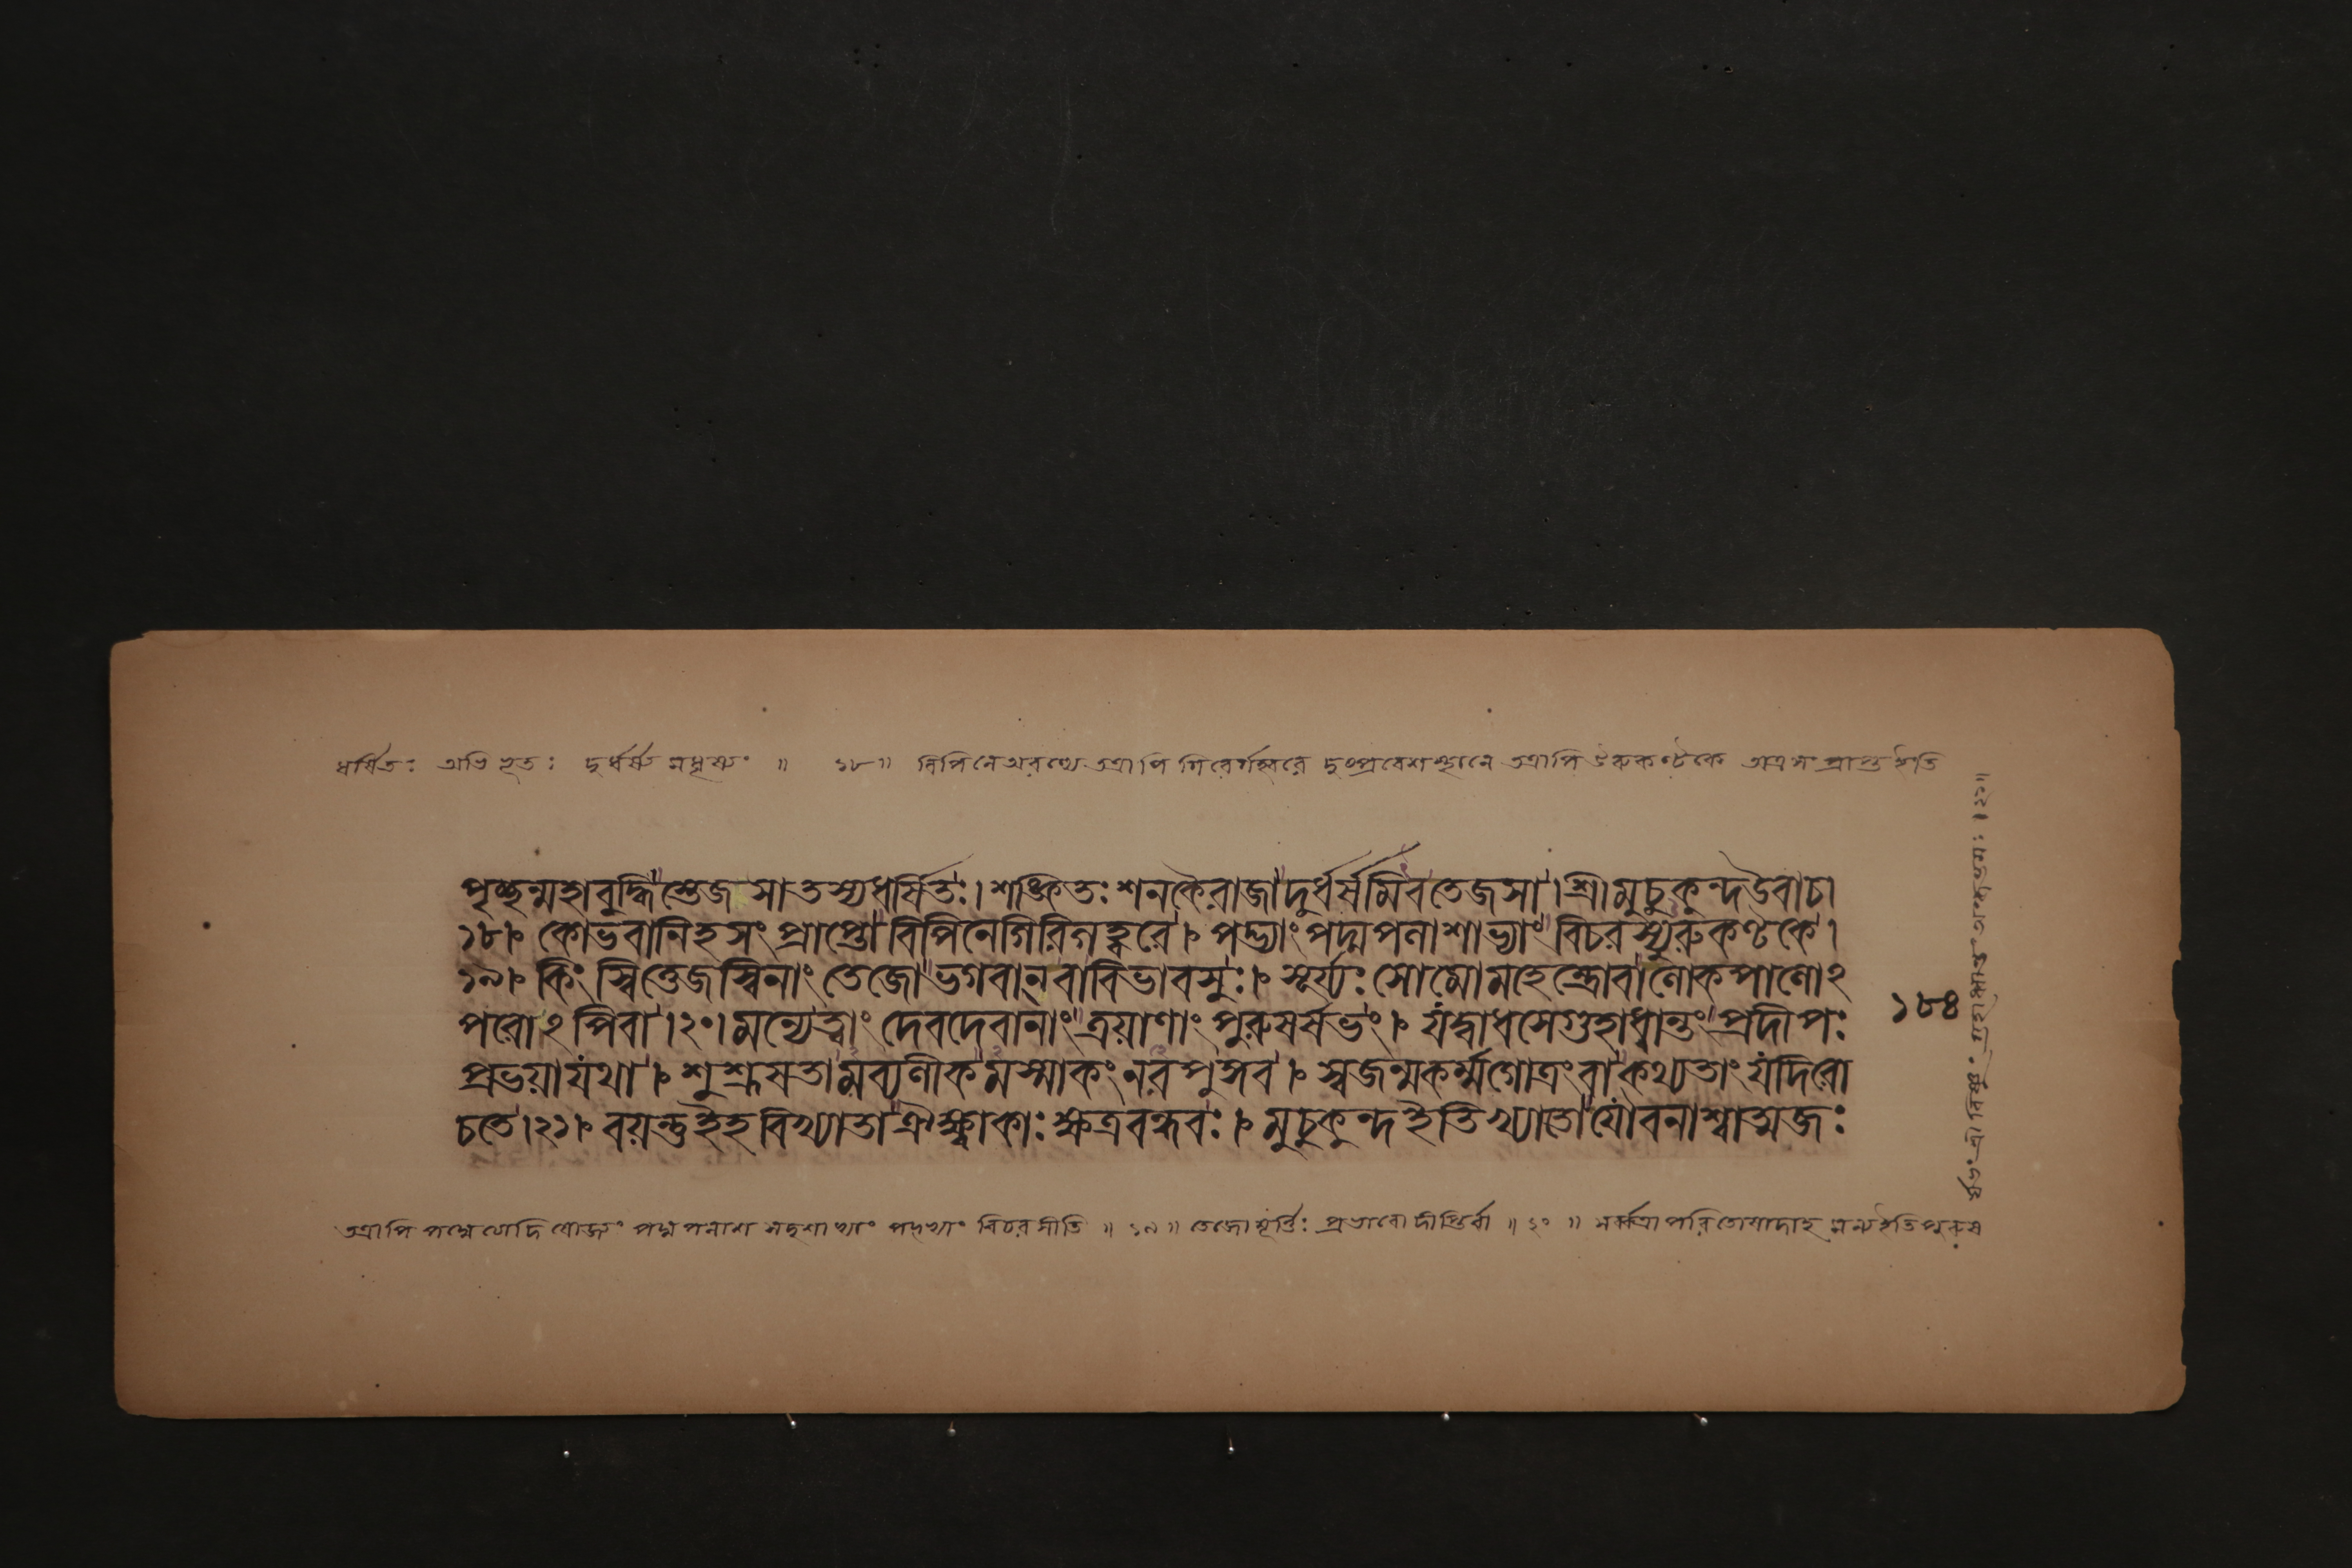 ধর্ষিতঃ অভিভূতঃ দুর্ধর্ষং মধৃষ্যং ॥ ১৮॥ বিপিনে অরণ্যে তত্রাপি গিরের্গহ্বরে দুঃপ্রবেশস্থানে তত্রাপি উরুকণ্টকে অত্র সংপ্রাপ্ত ইতি
পৃচ্ছন্মহাবুদ্ধিস্তেজসা তস্য ধর্ষিতঃ। শঙ্কিতঃ শনকৈরাজা দুর্ধর্ষমিব তেজসা। শ্রীমুচুকুন্দ উবাচ।
১৮। কোভবানিহ সংপ্রাপ্তো বিপিনে গিরিগহ্বরে। পদ্ভ্যাং পদ্মপলাশাভ্যাং বিচরস্যুরুকণ্টকে।
১৯। কিং স্বিত্তেজস্বিনাং তেজো ভগবান্ বা বিভাবসুঃ। সূর্য্যঃ সোমো মহেন্দ্রো বা লোকপালোঽ
পরোঽপি বা।২০। মন্যে ত্বাং দেবদেবানাং ত্রয়াণাং পুরুষর্ষভং। যদ্বাধসে গুহাধ্বান্তং প্রদীপঃ
প্রভয়া যথা। শুশ্রূষতামব্যলীকমস্মাকং নরপুঙ্গব। স্বজন্মকর্ম্মগোত্রং বা কথ্যতাং যদি রো
চতে।২১। বয়ন্তু ইহ বিখ্যাতা ঐক্ষ্বাকাঃ ক্ষত্রবন্ধবঃ। মুচুকুন্দ ইতি খ্যাতো যৌবনাশ্বাত্মজঃ
১৮৪
তত্রাপি পদ্মপলাশ সদৃশাভ্যাং পদ্ভ্যাং বিচরসীতি ॥ ১৯ ॥ তেজো মূর্ত্তিঃ প্রভাবো দীপ্তির্বা ॥ ২০ ॥ মন্য ইতি পুরুষ